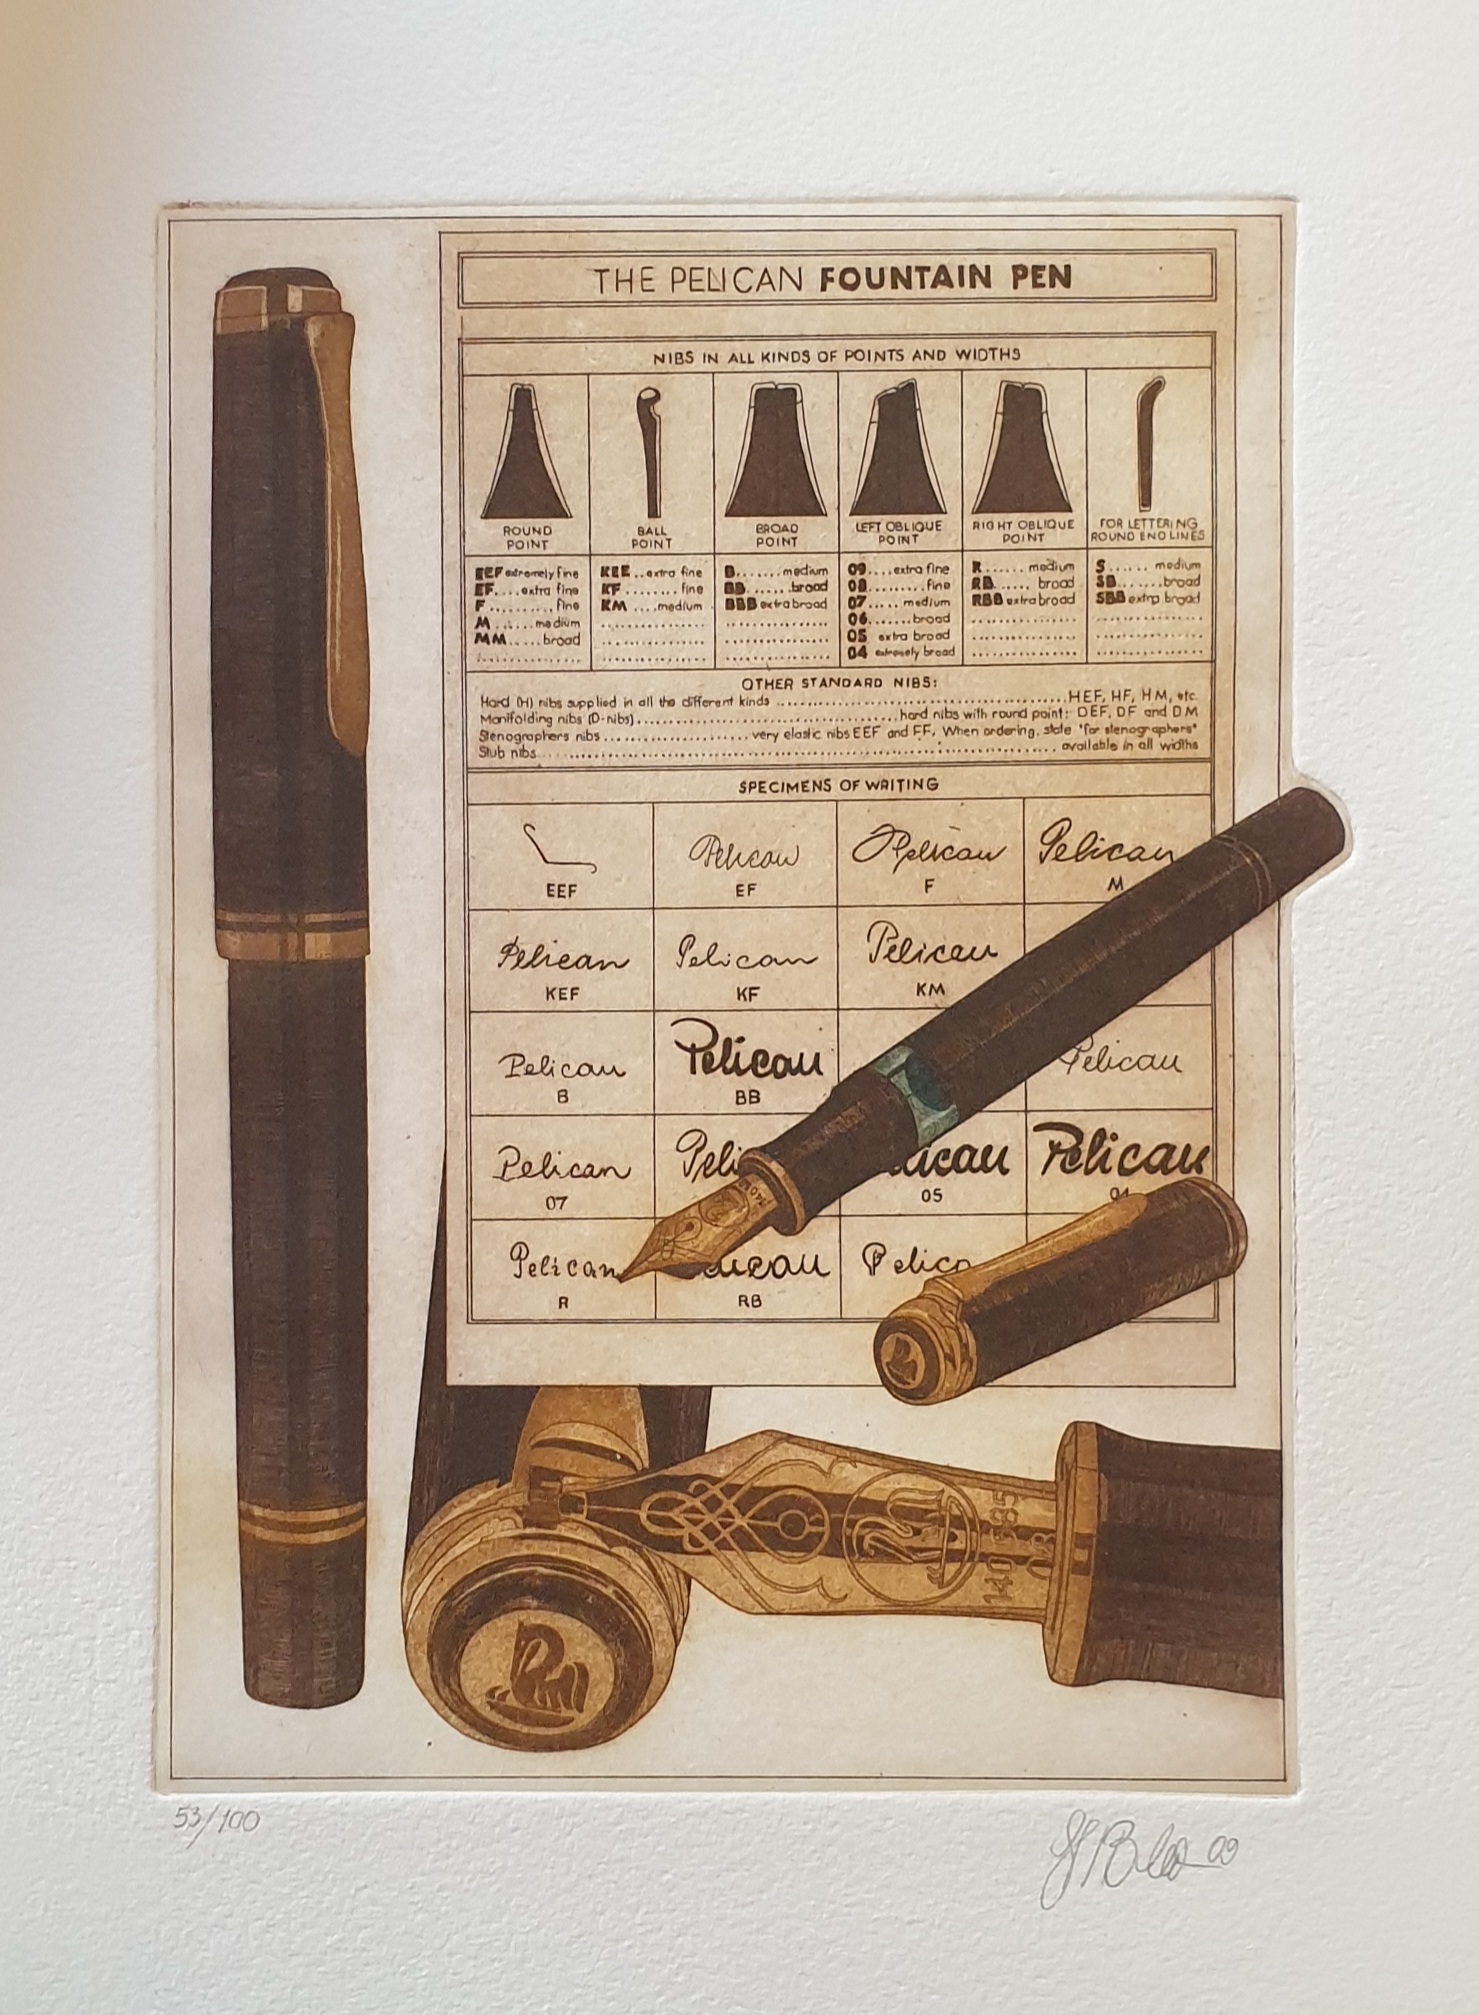 THE PELICAN FOUNTAIN PEN
NIBS IN ALL KINDS OF POINTS AND WIDTHS
ROUND POINT
BALL POINT
BROAD POINT
LEFT OBLIQUE POINT
RIGHT OBLIQUE POINT
FOR LETTERING ROUND END LINES
EEF extremely fine
EF....extra fine
F..........fine
M......medium
MM.....broad
KEE..extra fine
KF........fine
KM....medium
B.......medium
BB.......broad
BBB extra broad
09....extra fine
08........fine
07.....medium
06.......broad
05 extra broad
04 extremely broad
R.......medium
RB......broad
RBB extra broad
S......medium
SB.......broad
SBB extra broad
OTHER STANDARD NIBS:
Hard (H) nibs supplied in all the different kinds ........ HEF, HF, HM, etc.
Manifolding nibs (D-nibs) ........ hard nibs with round point: DEF, DF and DM
Stenographers nibs ........ very elastic nibs EEF and FF. When ordering, state "for stenographers"
Stub nibs ........ available in all widths
SPECIMENS OF WRITING
EEF
Pelican
EF
Pelican
F
Pelican
M
Pelican
KEF
Pelican
KF
Pelican
KM
Pelican
B
Pelican
BB
Pelican
Pelican
07
Peli
ican
05
Pelican
04
Pelican
R
RB
Pelica
14C 585
53/100
09